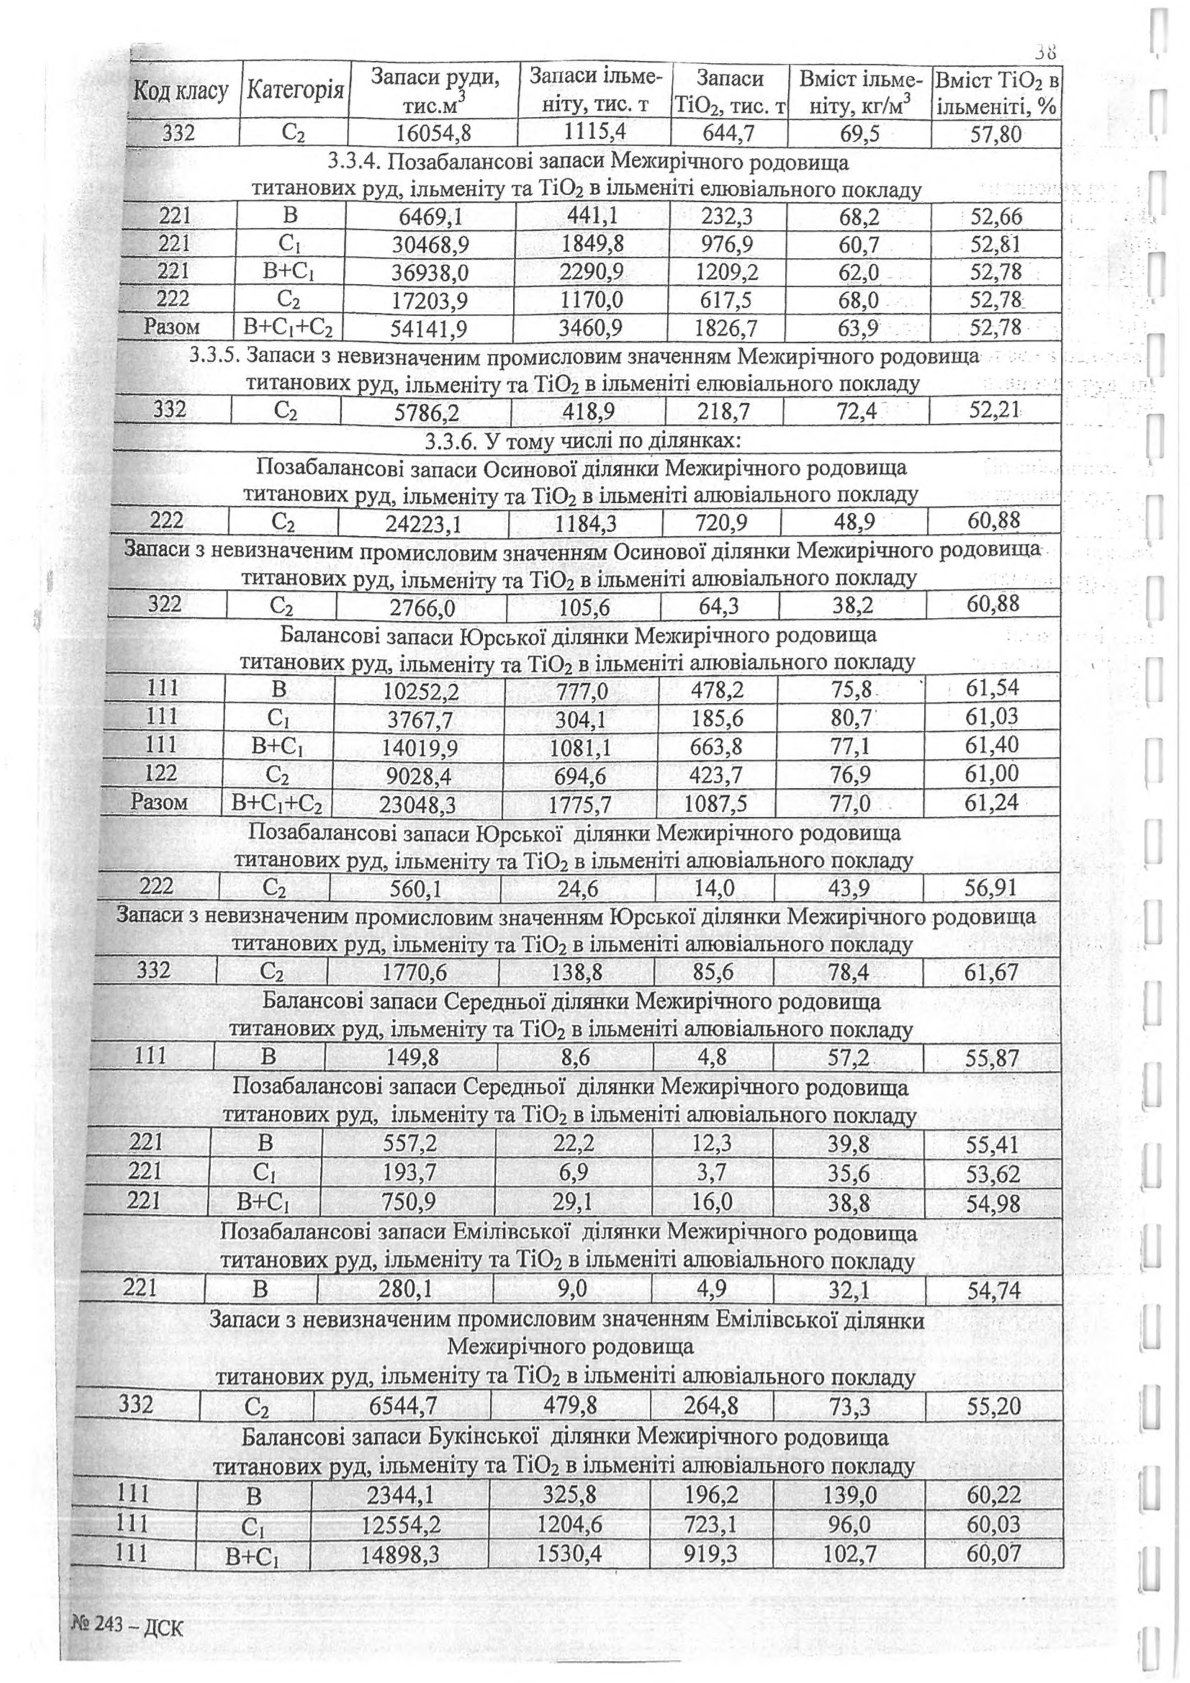 38
Код класу Категорія Запаси руди, тис.м³ Запаси ільме-ніту, тис. т Запаси TiO₂, тис. т Вміст ільме-ніту, кг/м³ Вміст TiO₂ в ільменіті, %
332 C₂ 16054,8 1115,4 644,7 69,5 57,80
3.3.4. Позабалансові запаси Межирічного родовища
титанових руд, ільменіту та TiO₂ в ільменіті елювіального покладу
221 B 6469,1 441,1 232,3 68,2 52,66
221 C₁ 30468,9 1849,8 976,9 60,7 52,81
221 B+C₁ 36938,0 2290,9 1209,2 62,0 52,78
222 C₂ 17203,9 1170,0 617,5 68,0 52,78
Разом B+C₁+C₂ 54141,9 3460,9 1826,7 63,9 52,78
3.3.5. Запаси з невизначеним промисловим значенням Межирічного родовища
титанових руд, ільменіту та TiO₂ в ільменіті елювіального покладу
332 C₂ 5786,2 418,9 218,7 72,4 52,21
3.3.6. У тому числі по ділянках:
Позабалансові запаси Осинової ділянки Межирічного родовища
титанових руд, ільменіту та TiO₂ в ільменіті алювіального покладу
222 C₂ 24223,1 1184,3 720,9 48,9 60,88
Запаси з невизначеним промисловим значенням Осинової ділянки Межирічного родовища
титанових руд, ільменіту та TiO₂ в ільменіті алювіального покладу
322 C₂ 2766,0 105,6 64,3 38,2 60,88
Балансові запаси Юрської ділянки Межирічного родовища
титанових руд, ільменіту та TiO₂ в ільменіті алювіального покладу
111 B 10252,2 777,0 478,2 75,8 61,54
111 C₁ 3767,7 304,1 185,6 80,7 61,03
111 B+C₁ 14019,9 1081,1 663,8 77,1 61,40
122 C₂ 9028,4 694,6 423,7 76,9 61,00
Разом B+C₁+C₂ 23048,3 1775,7 1087,5 77,0 61,24
Позабалансові запаси Юрської ділянки Межирічного родовища
титанових руд, ільменіту та TiO₂ в ільменіті алювіального покладу
222 C₂ 560,1 24,6 14,0 43,9 56,91
Запаси з невизначеним промисловим значенням Юрської ділянки Межирічного родовища
титанових руд, ільменіту та TiO₂ в ільменіті алювіального покладу
332 C₂ 1770,6 138,8 85,6 78,4 61,67
Балансові запаси Середньої ділянки Межирічного родовища
титанових руд, ільменіту та TiO₂ в ільменіті алювіального покладу
111 B 149,8 8,6 4,8 57,2 55,87
Позабалансові запаси Середньої ділянки Межирічного родовища
титанових руд, ільменіту та TiO₂ в ільменіті алювіального покладу
221 B 557,2 22,2 12,3 39,8 55,41
221 C₁ 193,7 6,9 3,7 35,6 53,62
221 B+C₁ 750,9 29,1 16,0 38,8 54,98
Позабалансові запаси Емілівської ділянки Межирічного родовища
титанових руд, ільменіту та TiO₂ в ільменіті алювіального покладу
221 B 280,1 9,0 4,9 32,1 54,74
Запаси з невизначеним промисловим значенням Емілівської ділянки
Межирічного родовища
титанових руд, ільменіту та TiO₂ в ільменіті алювіального покладу
332 C₂ 6544,7 479,8 264,8 73,3 55,20
Балансові запаси Букінської ділянки Межирічного родовища
титанових руд, ільменіту та TiO₂ в ільменіті алювіального покладу
111 B 2344,1 325,8 196,2 139,0 60,22
111 C₁ 12554,2 1204,6 723,1 96,0 60,03
111 B+C₁ 14898,3 1530,4 919,3 102,7 60,07
№ 243 – ДСК